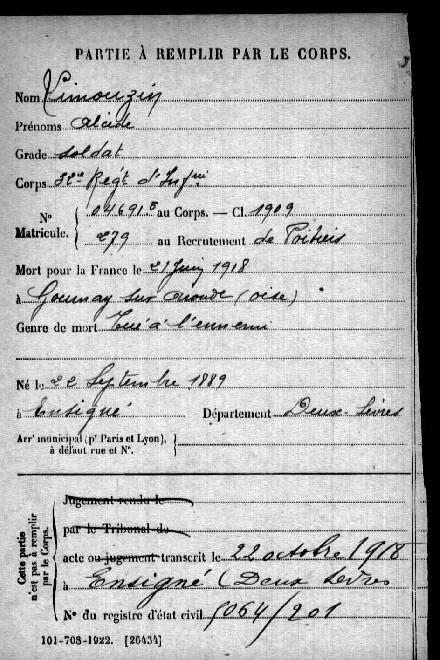 PARTIE À REMPLIR PAR LE CORPS.
Nom Limouzin
Prénoms Alcide
Grade soldat
Corps 32e Regt d'Infrie
Nº Matricule. 04691 au Corps. — Cl. 1909
279 au Recrutement de Poitiers
Mort pour la France le 21 Juin 1918
à Gournay sur Aronde (Oise)
Genre de mort Tué à l'ennemi
Né le 22 Septembre 1889
à Ensigné Département Deux-Sèvres
Arrt municipal (pr Paris et Lyon), à défaut rue et Nº.
Cette partie n'est pas à remplir par le Corps.
Jugement rendu le
par le Tribunal de
acte ou jugement transcrit le 22 octobre 1918
à Ensigné (Deux Sèvres
Nº du registre d'état civil 5064/201
101-708-1922. [26434]